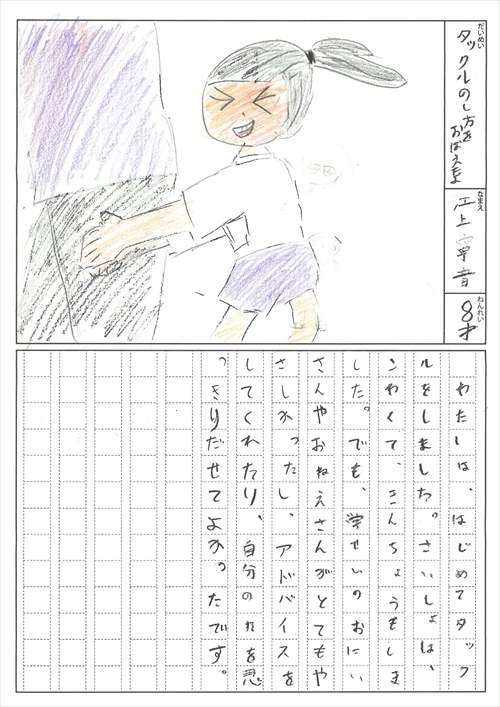 だいめい
タックルのし方を
おぼえたよ
なまえ
江上寧音
ねんれい
8才
わたしは、はじめてタック
ルをしました。さいしょは、
こわくて、きんちょうもしま
した。でも、学せいのおにい
さんやおねえさんがとてもや
さしかったし、アドバイスを
してくれたり、自分の力を思
っきりだせてよかったです。